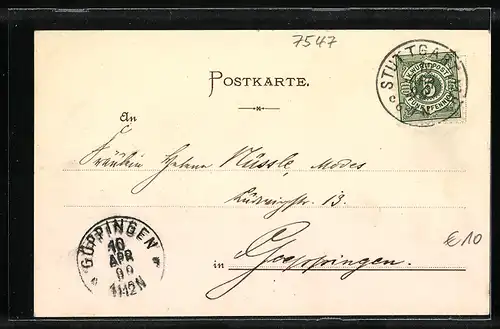 7547
STUTTGART
K. WÜRTT. POST
5
FÜNF PFENNIG
POSTKARTE.
An
Fräulein Helene Nüssle, Modes
Ludwigstr. 13.
in Goeppingen.
GÖPPINGEN
10
APR
99
€10